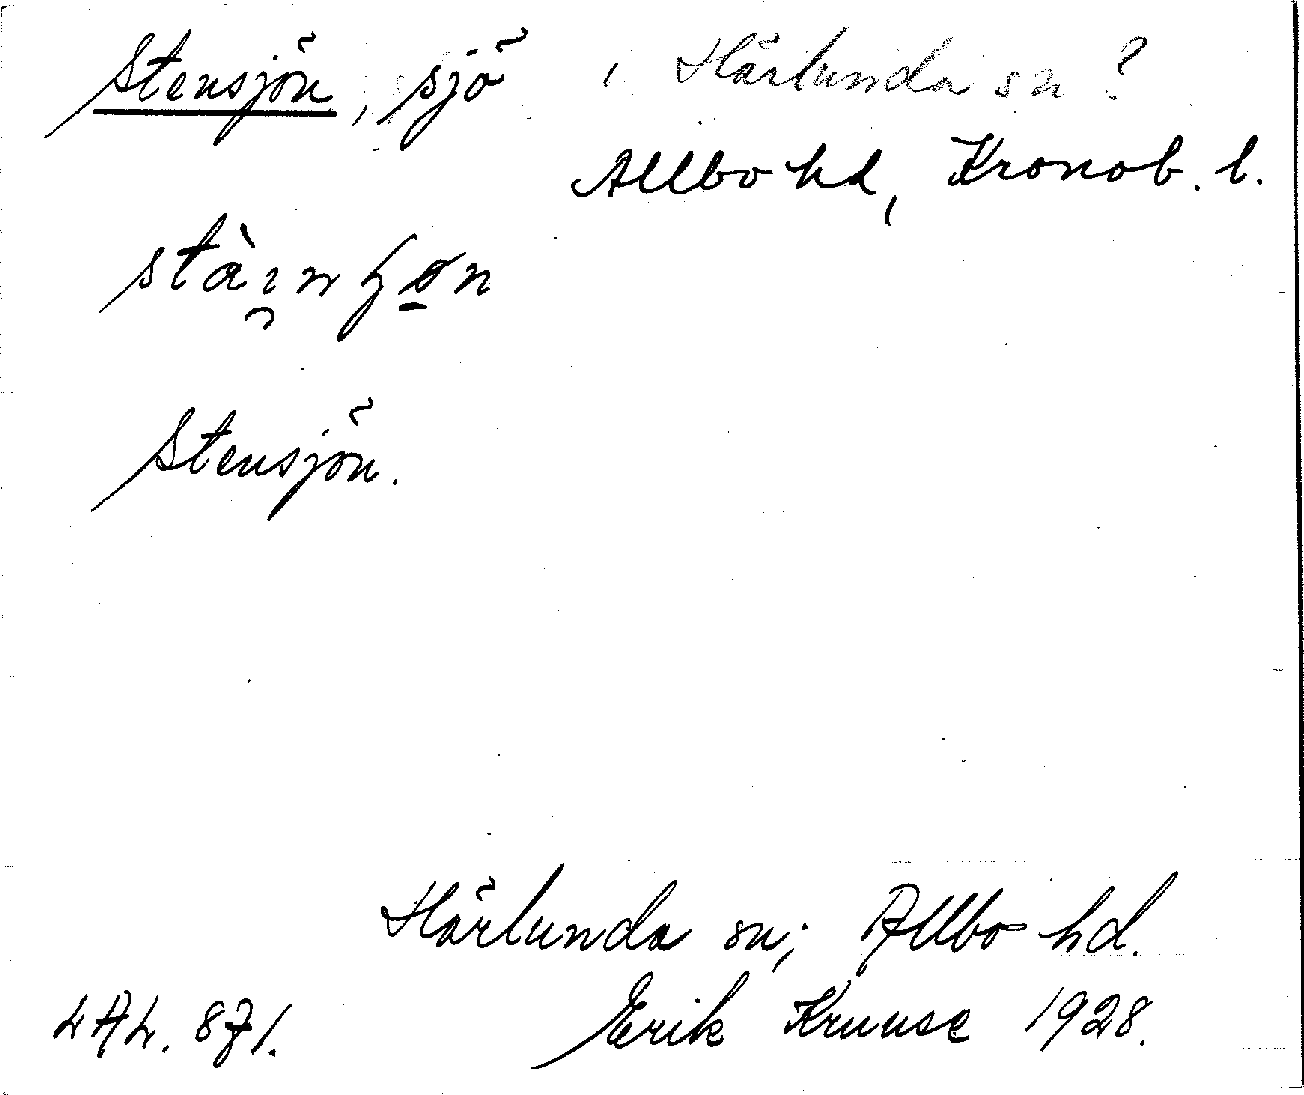 Stensjön, sjö i Härlunda sn ?
Allbo hd, Kronob. l.
Stensjön.
Härlunda sn; Allbo hd.
LAL. 871. Erik Kruuse 1928.